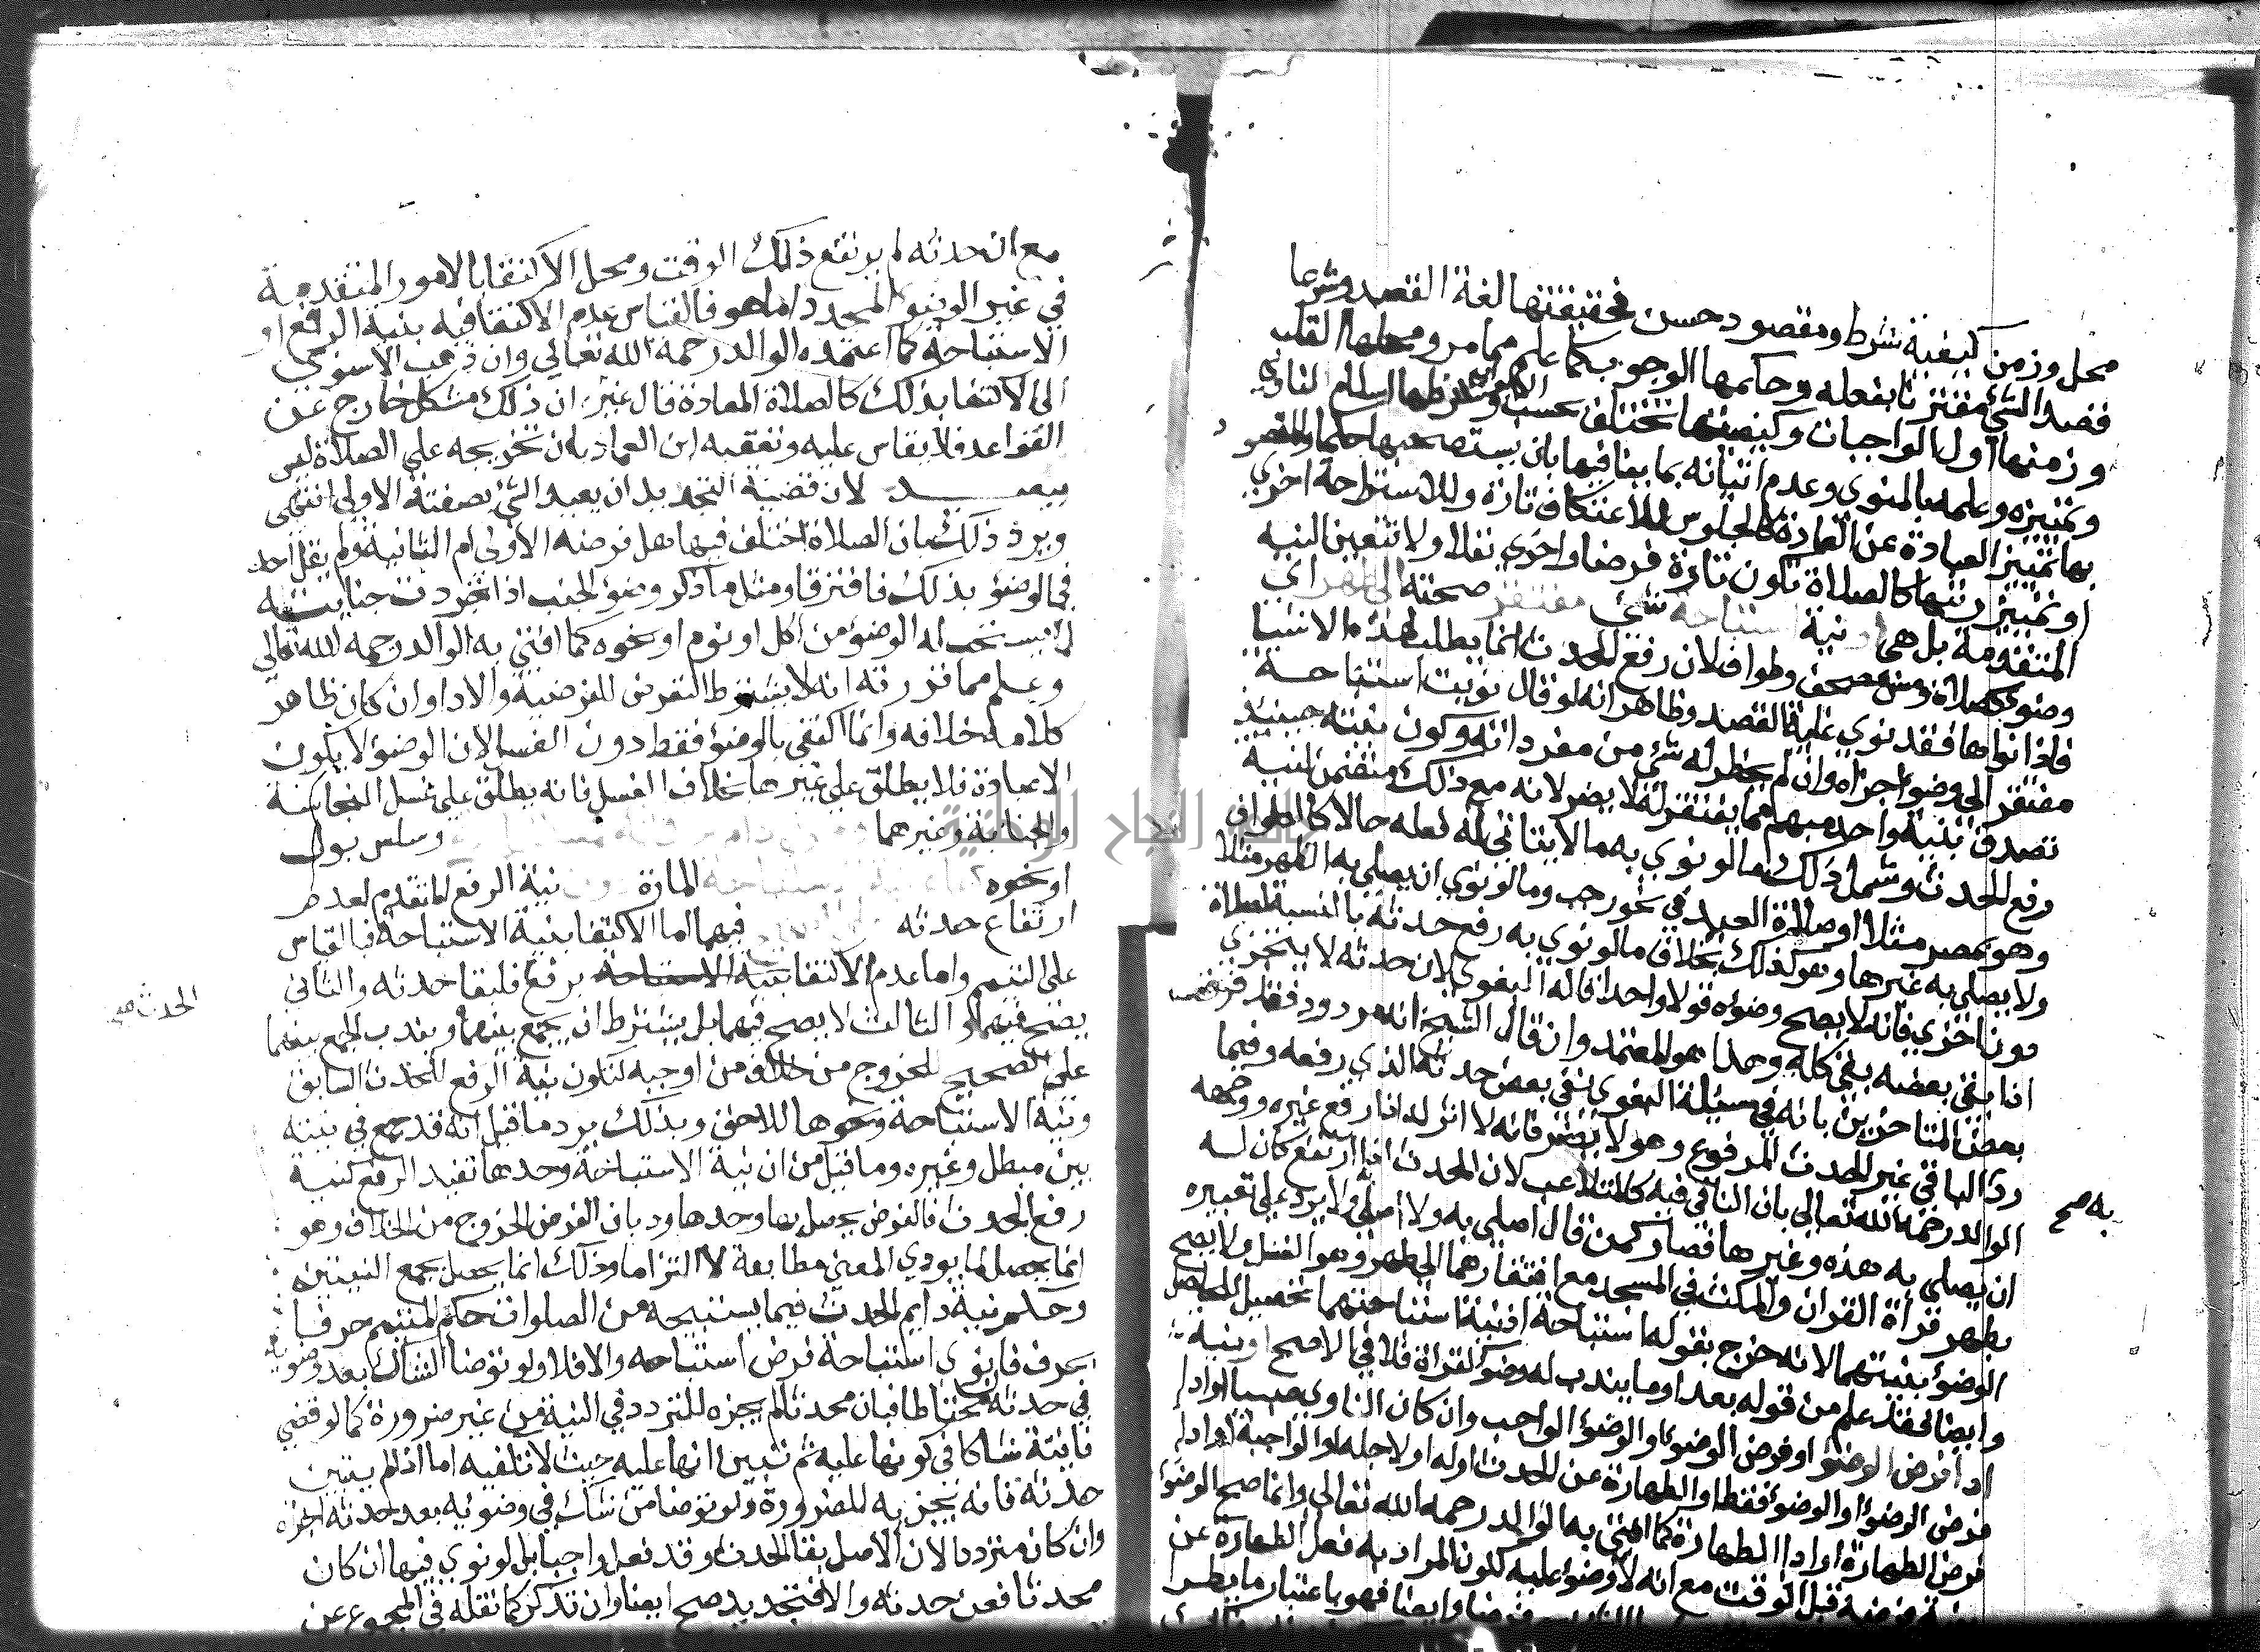 محل وزمن كيفية شرط ومقصود حسن فحقيقتها لغة القصد وشرعا
قصد الشئ مقترنا بفعله وحكمها الوجوب كما علم مما مر ومحلها القلب
وزمنها اول الواجبات وكيفيتها تختلف بحسب الابواب وشرطها اسلام الناوي
وتمييزه وعلمه بالمنوي وعدم اتيانه بما ينافيها بان يستصحبها حكما والمقصود
بها تمييز العبادة عن العادة كالجلوس للاعتكاف تارة وللاستراحة اخري
او تمييز رتبها كالصلاة تكون تارة فرضا واخري نفلا ولا تتعين النية
المتقدمة بل هي او نية استباحة شئ مفتقر صحته الي طهر اي
وضوء كصلاة ومس مصحف وطواف لان رفع الحدث انما يطلب لهذه الاشيا
فاذا نواها فقد نوي غاية القصد وظاهر انه لو قال نويت استباحة
مفتقر الي وضوء اجزاه وان لم يخطر له شئ من مفرداته وكون نيته حينئذ
تصدق بنية واحد مبهم مما يفتقر له لا يضر لانه مع ذلك متضمن لنية
رفع الحدث وشمل ذلك ما لو نوي به ما لا يتاتي له فعله حالا كالطواف
وهو بمصر مثلا او صلاة العيد في نحو رجب وما لو نوي ان يصلي به الظهر مثلا
ولا يصلي به غيرها وهو كذلك بخلاف ما لو نوي به رفع حدثه بالنسبة لصلاة
دون اخري فانه لا يصح وضوءه قولا واحدا قاله البغوي لان حدثه لا يتجزي
اذا بقي بعضه بقي كله وهذا هو المعتمد وان قال الشيخ انه مردود فقد فرق
بعض المتاخرين بانه في مسيلة البغوي نفي بعض حدثه الذي رفعه وفيما
رد الباقي غير الحدث المرفوع وهو لا يضر فانه لا اثر له اذا رفع غيره ووجهه
الوالد رحمه الله تعالي بان الناوي فيه كالمتلاعب لان الحدث اذا ارتفع كان له
به صح
ان يصلي به هذه وغيرها فصار كمن قال اصلي به ولا اصلي ولا يرد علي تعبيره
بطهر قراة القران والمكث في المسجد مع افتقارهما الي طهر وهو الغسل ولا يصح
الوضوء بنيتهما لانه خرج بقوله استباحة اذ نية استباحتهما تحصيل للحاصل
وايضا فقد علم من قوله بعد او ما يندب له وضوء كقراة فلا في الاصح او نية
ادا فرض الوضوء او فرض الوضوء او الوضوء الواجب وان كان الناوي صبيا او ادا
فرض الوضوء او الوضوء فقط او الطهارة عن الحدث او له او لاجله او الواجبة او ادا
فرض الطهارة او ادا الطهارة كما افتي به الوالد رحمه الله تعالي وانما صح الوضوء
بنية فرضه قبل الوقت مع انه لا وضوء عليه لكون المراد به فعل الطهارة عن
مع ان حدثه لم يرتفع ذلك الوقت ومحل الاكتفا بالامور المتقدمة
في غير الوضوء المجدد اما هو فالقياس عدم الاكتفا فيه بنية الرفع او
الاستباحة كما اعتمده الوالد رحمه الله تعالي وان ذهب الاسنوي
الي الاكتفا بذلك كالصلاة المعادة قال غيره ان ذلك مشكل خارج عن
القواعد فلا يقاس عليه وتعقبه ابن العماد بان تخريجه علي الصلاة ليس
ببعيد لان قضية التجديد ان يعيد الشئ بصفته الاولي انتهي
ويرد ذلك بان الصلاة اختلف فيها هل فرضه الاولي ام الثانية ولم يقل احد
في الوضوء بذلك فافترقا ومثل ما ذكر وضوء الجنب اذا تجردت جنابته
لما يستحب له الوضوء من اكل او نوم او نحوه كما افتي به الوالد رحمه الله تعالي
وعلم مما قررته انه لا يشترط التعرض للفرضية والادا وان كان ظاهر
كلامه خلافه وانما اكتفي بالوضوء فقط دون الغسل لان الوضوء لا يكون
الا عبادة فلا يطلق علي غيرها بخلاف الغسل فانه يطلق علي غسل النجاسة
والجنابة وغيرهما ومن دام حدثه وسلس بول
او نحوه كفاه نية الاستباحة المارة دون نية الرفع لما تقدم لعدم
ارتفاع حدثه فيهما اما الاكتفا بنية الاستباحة فبالقياس
علي التيمم واما عدم الاكتفا بنية الاستباحة برفع فلبقا حدثه والثاني
الحدث صح
يصح فيهما والثالث لا يصح فيهما بل يشترط ان يجمع بينهما ويندب الجمع بينهما
علي الصحيح للخروج من خلاف من اوجبه لتكون نية الرفع للحدث السابق
ونية الاستباحة ونحوها للاحق وبذلك يرد ما قيل انه قد جمع في نيته
بين مبطل وغيره وما قيل من ان نية الاستباحة وحدها تفيد الرفع كنية
رفع الحدث فالغرض يحصل بها وحدها ورد بان الغرض الخروج من الخلاف وهو
انما يحصل بما يودي المعني مطابقة لا التزاما وذلك انما يحصل بجمع النيتين
وحكم نية دايم الحدث فيما يستبيحه من الصلوات حكم المتيمم حرفا
بحرف فان نوي استباحة فرض استباحه والا فلا ولو توضا الشاك بعد وضوئه
في حدثه محتاطا فبان محدثا لم يجزه للتردد في النية من غير ضرورة كما لو قضي
فايتة شاكا في كونها عليه ثم تبين انها عليه حيث لا تكفيه اما اذا لم يتبين
حدثه فانه يجزيه للضرورة ولو توضا من شك في وضوئه بعد حدثه اجزاه
وان كان مترددا لان الاصل بقا الحدث وقد فعل واجبا بل لو نوي فيها ان كان
محدثا فعن حدثه والا فتجديد صح ايضا وان تذكر كما نقله في المجموع عن
جامعة النجاح الوطنية